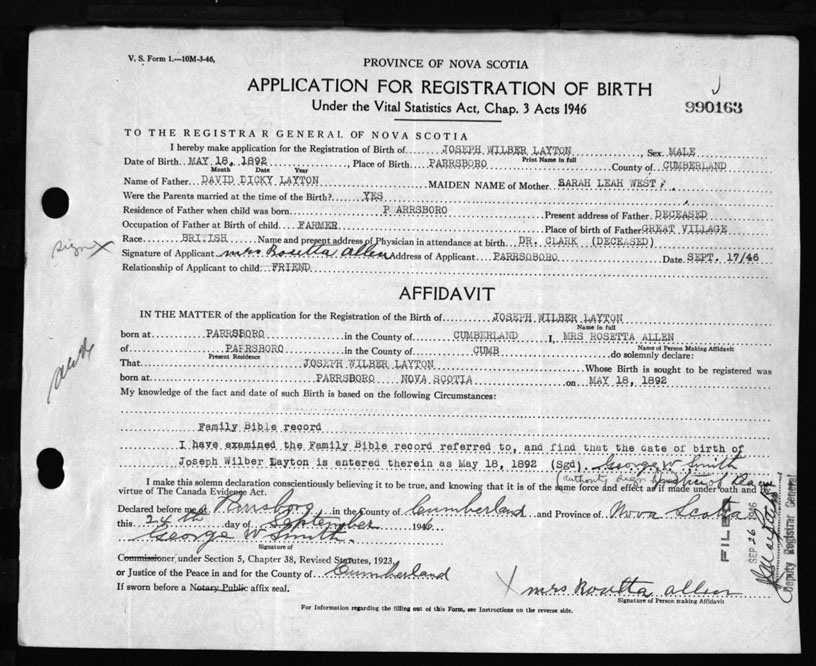 V. S. Form 1.—10M-3-46,
PROVINCE OF NOVA SCOTIA
APPLICATION FOR REGISTRATION OF BIRTH
Under the Vital Statistics Act, Chap. 3 Acts 1946
990163
TO THE REGISTRAR GENERAL OF NOVA SCOTIA
I hereby make application for the Registration of Birth of JOSEPH WILBER LAYTON, Sex MALE
Print Name in full
Date of Birth MAY 18, 1892, Place of Birth PARRSBORO County of CUMBERLAND
Month Date Year
Name of Father DAVID DICKY LAYTON MAIDEN NAME of Mother SARAH LEAH WEST
Were the Parents married at the time of the Birth? YES
Residence of Father when child was born P ARRSBORO Present address of Father DECEASED
Occupation of Father at Birth of child FARMER Place of birth of Father GREAT VILLAGE
Race BRITISH Name and present address of Physician in attendance at birth DR. CLARK (DECEASED)
sign X
Signature of Applicant mrs Rosetta allen Address of Applicant PARRSOBORO Date SEPT. 17/46
Relationship of Applicant to child FRIEND
AFFIDAVIT
IN THE MATTER of the application for the Registration of the Birth of JOSEPH WILBER LAYTON
Name in full
born at PARRSBORO in the County of CUMBERLAND I, MRS ROSETTA ALLEN
Name of Person Making Affidavit
of PARRSBORO in the County of CUMB do solemnly declare:
Present Residence
That JOSEPH WILBER LAYTON Whose Birth is sought to be registered was
born at PARRSBORO NOVA SCOTIA on MAY 18, 1892
My knowledge of the fact and date of such Birth is based on the following Circumstances:
Family Bible record
I have examined the Family Bible record referred to, and find that the date of birth of
Joseph Wilber Layton is entered therein as May 18, 1892 (Sgd) George W Smith
(authority sign Justice of Peace
I make this solemn declaration conscientiously believing it to be true, and knowing that it is of the same force and effect as if made under oath and by
virtue of The Canada Evidence Act.
Declared before me at Parrsboro in the County of Cumberland and Province of Nova Scotia
this 24th day of September 1946
George W Smith.
Signature of
Commissioner under Section 5, Chapter 38, Revised Statutes, 1923
or Justice of the Peace in and for the County of Cumberland
If sworn before a Notary Public affix seal.
X mrs Rosetta allen
Signature of Person making Affidavit
For Information regarding the filling out of this Form, see Instructions on the reverse side.
FILED
SEP 26 1946
Deputy Registrar General